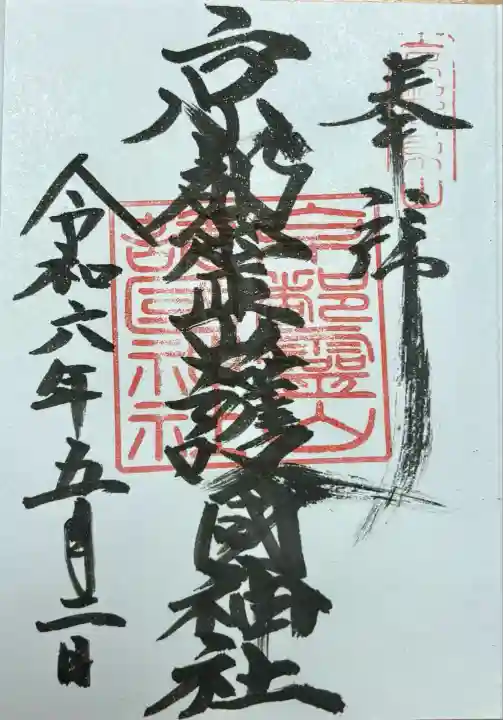 奉拝
京都靈山護國神社
令和六年五月二日
京都靈山
護國神社